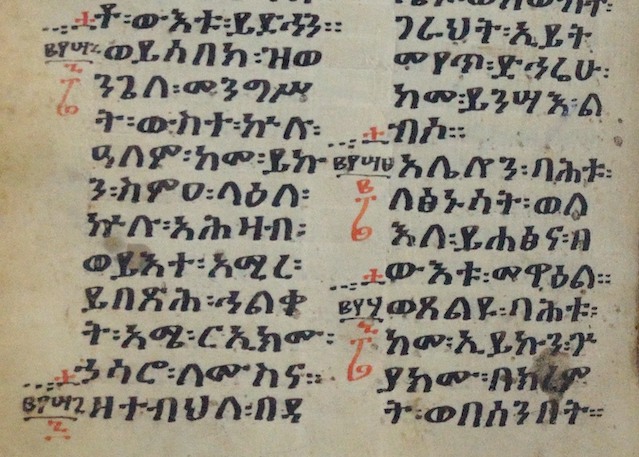 ቶ፡ውእቱ፡ይድኅን።
ወይሰበክ፡ዝወ
ንጌለ፡መንግሥ
ት፡ውስተ፡ኵሉ፡
ዓለም፡ከመ፡ይኩ
ን፡ስምዐ፡ላዕለ፡
ኵሉ፡አሕዛብ፡
ወይእተ፡አሚረ፡
ይበጽሕ፡ኅልቀ
ት፡አሜ፡ርኢክሙ፡
ኀሳሮ፡ለሙስና።
ዘተብህለ፡በዳ
ገራህት፡ኢይት
መየጥ፡ድኅሬሁ፡
ከመ፡ይንሣእ፡ል
ብሶ።
አሌሎን፡ባሕቱ፡
ለፅኑሳት፡ወለ
እለ፡ይሐፅና፡በ
ውእቱ፡መዋዕል።
ወጸልዩ፡ባሕቱ፡
ከመ፡ኢይኩን፡ጕ
ያክሙ፡በክረም
ት፡ወበሰንበት።